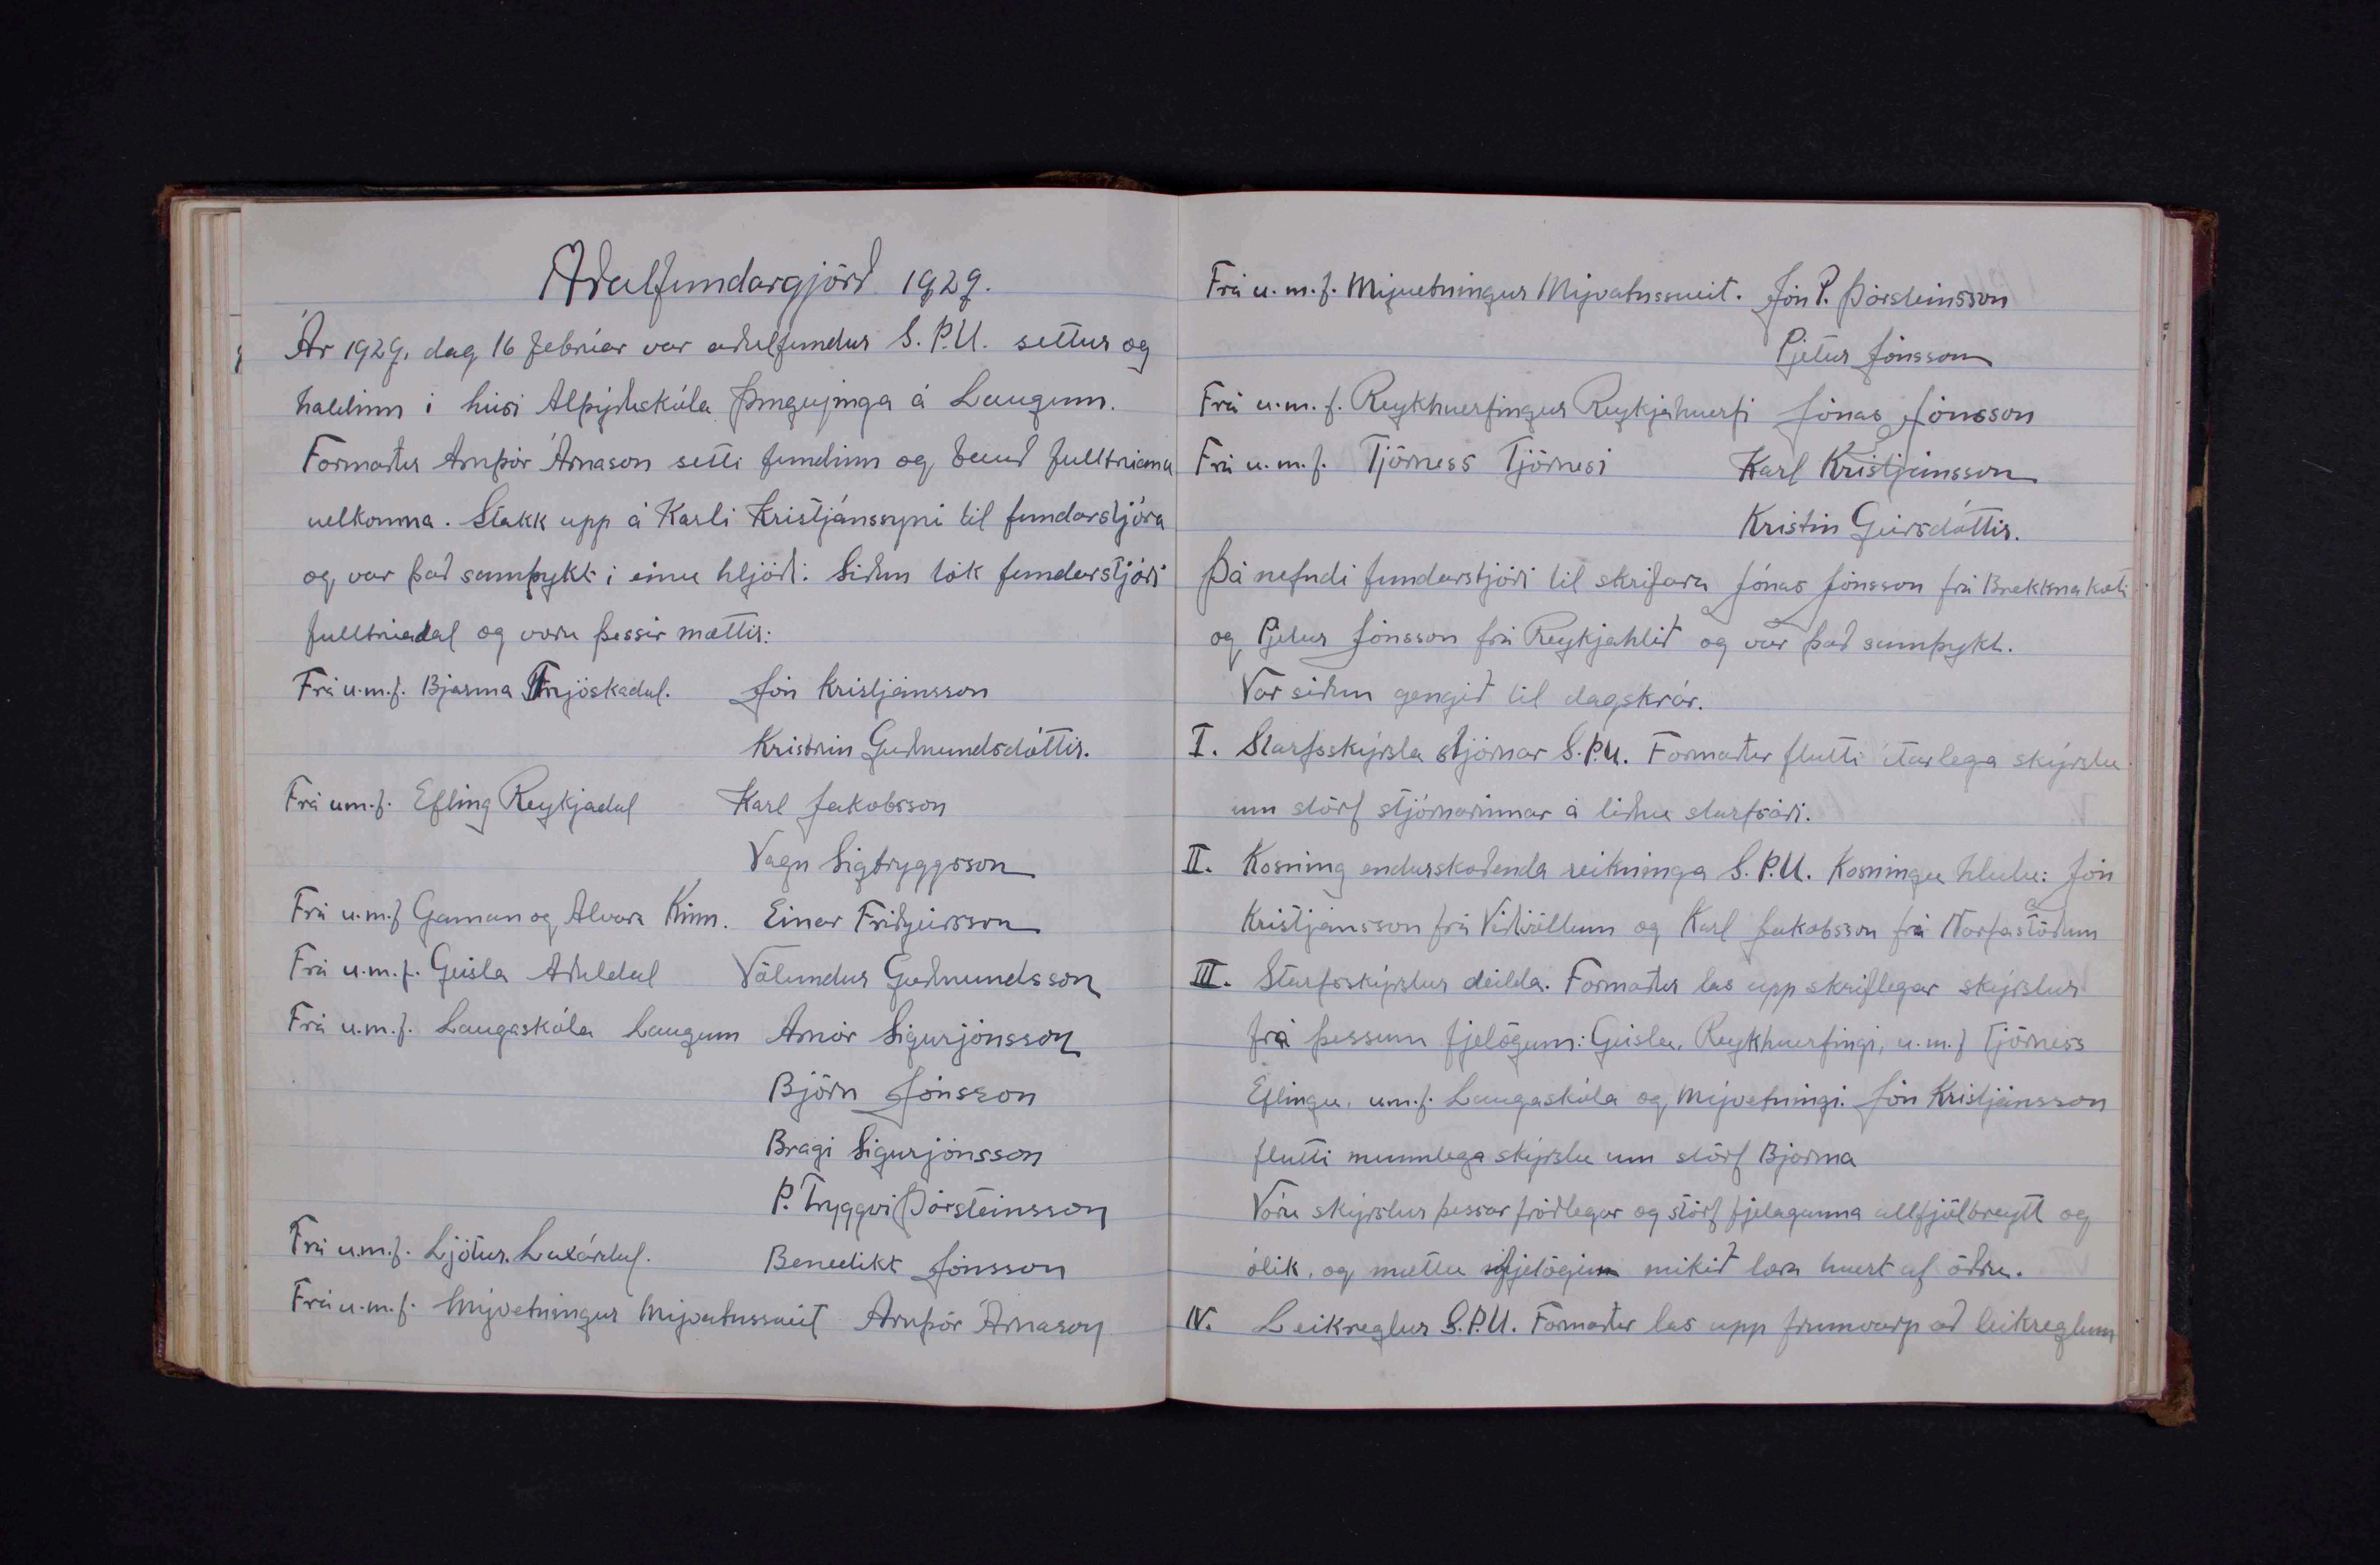 Aðalfundargjörð 1929.
Ár 1929, dag 16 febrúar var aðalfundur S.Þ.U. settur og
haldinn í húsi Alþýðuskóla Þingeyinga á Laugum.
Formaður Arnþór Árnason setti fundinn og bauð fulltrúana
velkomna. Stakk upp á Karli Kristjánssyni til fundarstjóra
og var það samþykt í einu hljóði. Síðan tók fundarstjóri
fulltrúatal og voru þessir mættir:
Frá u.m.f. Bjarma Fnjóskadal. Jón Kristjánsson
Kristrín Guðmundsdóttir.
Frá u.m.f. Efling Reykjadal Karl Jakobsson
Vagn Sigtryggsson
Frá u.m.f Gaman og Alvara Kinn. Einar Friðgeirsson
Frá u.m.f. Geisla Aðaldal Völundur Guðmundsson
Frá u.m.f. Laugaskóla Laugum Arnór Sigurjónsson
Björn Jónsson
Bragi Sigurjónsson
P. Tryggvi Þórsteinsson
Frá u.m.f. Ljótur. Laxárdal. Benedikt Jónsson
Frá u.m.f. Mývetningur Mývatnssveit Arnþór Árnason
Frá u.m.f. Mývetningur Mývatnssveit. Jón P. Þórsteinsson
Pjetur Jónsson
Frá u.m.f. Reykhverfingur Reykjahverfi Jónas Jónsson
Frá u.m.f. Tjörness Tjörnesi Karl Kristjánsson
Kristín Geirsdóttir.
Þá nefndi fundarstjóri til skrifara Jónas Jónsson frá Brekknakoti
og Pjetur Jónsson frá Reykjahlíð og var það samþykt.
Var síðan gengið til dagskrár.
I. Starfsskýrsla stjórnar S.Þ.U. Formaður flutti ítarlega skýrslu
um störf stjórnarinnar á liðnu starfsári.
II. Kosning endurskoðenda reikninga S.Þ.U. Kosningu hlutu: Jón
Kristjánsson frá Víðivöllum og Karl Jakobsson frá Narfastöðum
III. Starfsskýrslur deilda. Formaður las upp skriflegar skýrslur
frá þessum fjelögum: Geisla, Reykhverfingi, u.m.f Tjörness
Eflingu, u.m.f. Laugaskóla og Mývetningi. Jón Kristjánsson
flutti munnlega skýrslu um störf Bjarma
Vóru skýrslur þessar fróðlegar og störf fjelaganna allfjölbreytt og
ólík, og mættu fjelögin mikið læra hvert af öðru.
IV. Leikreglur S.Þ.U. Formaður las upp frumvarp að leikreglum